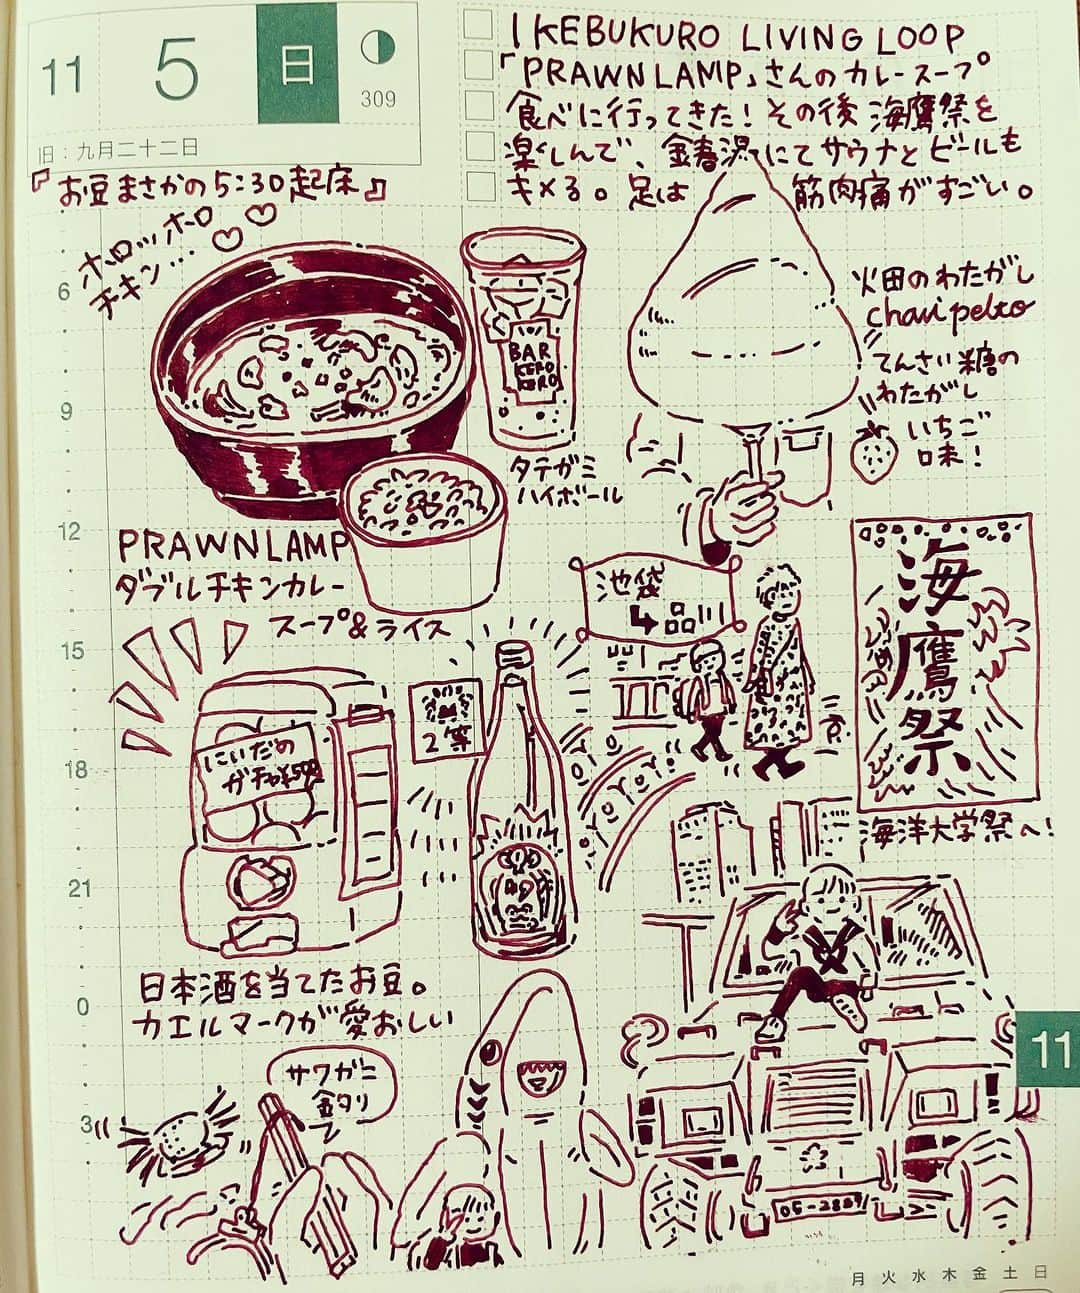 11 5 日
309
旧：九月二十二日
IKEBUKURO LIVING LOOP
「PRAWN LAMP」さんのカレースープ
食べに行ってきた！その後 海鷹祭を
楽しんで、金春湯にてサウナとビールも
キメる。足は 筋肉痛がすごい。
『お豆まさかの5:30起床』
ホロッホロ
チキン…
BAR
KERO
KERO
タテガミ
ハイボール
火田のわたがし
てんさい糖の
わたがし
いちご
味！
PRAWN LAMP
ダブルチキンカレー
スープ&ライス
池袋
↳品川
海鷹祭
海洋大学祭へ！
にいだの
ガチャ¥500
2等
日本酒を当てたお豆。
カエルマークが愛おしい
サワガニ
釣り
6
9
12
15
18
21
0
3
11
月 火 水 木 金 土 日